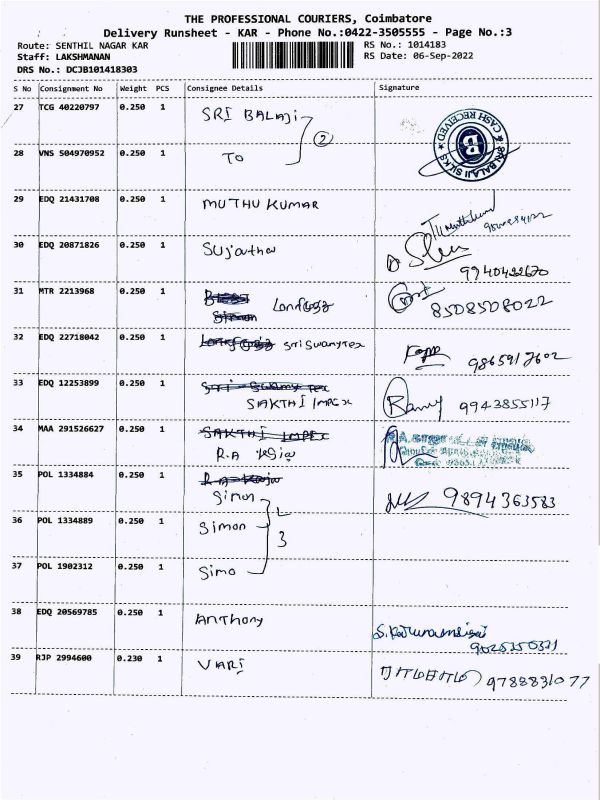 THE PROFESSIONAL COURIERS, Coimbatore
Delivery Runsheet - KAR - Phone No.:0422-3505555 - Page No.:3
Route: SENTHIL NAGAR KAR
RS No.: 1014183
Staff: LAKSHMANAN
RS Date: 06-Sep-2022
DRS No.: DCJB101418303
S No Consignment No Weight PCS Consignee Details Signature
27 TCG 40220797 0.250 1 SRI BALAJi
2
SRI BALAJI SILKS CASH RECEIVED
28 VNS 504970952 0.250 1 TO
29 EDQ 21431708 0.250 1 MUTHU KUMAR
30 EDQ 20871826 0.250 1 Sujatha
9940422670
31 MTR 2213968 0.250 1
8508508022
32 EDQ 22718042 0.250 1 Sri Swamy Tex
9865917602
33 EDQ 12253899 0.250 1 Sri Swamy Tex
SAKTHI IMPEX
Ramy 9943855117
34 MAA 291526627 0.250 1 SAKTHI IMPEX
R.A
35 POL 1334884 0.250 1
Simon
9894363583
36 POL 1334889 0.250 1 Simon
3
37 POL 1902312 0.250 1 Simo
38 EDQ 20569785 0.250 1 Anthony
39 RJP 2994600 0.230 1 VARI
9788831077